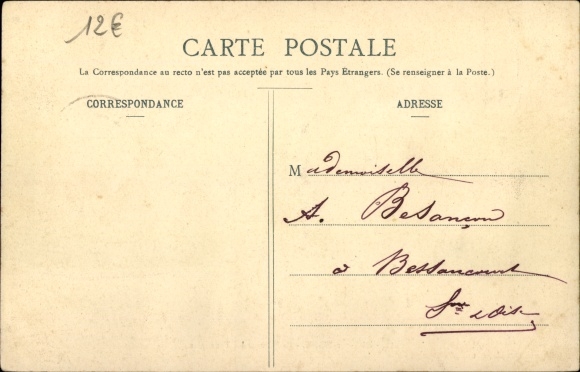 12€
CARTE POSTALE
La Correspondance au recto n'est pas acceptée par tous les Pays Etrangers. (Se renseigner à la Poste.)
CORRESPONDANCE
ADRESSE
Mademoiselle
A. Besançon
à Bessancourt
Sne et Oise